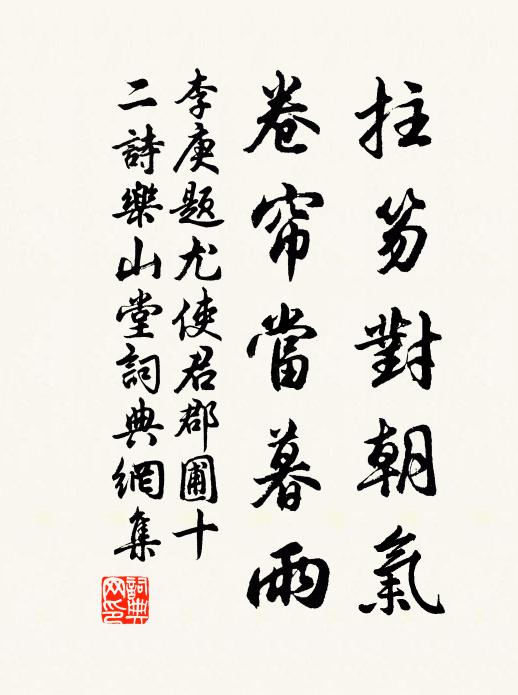 拄笏對朝氣
卷帘當暮雨
李庚題尤使君郡圃十
二詩樂山堂詞典網集
詞典
网印